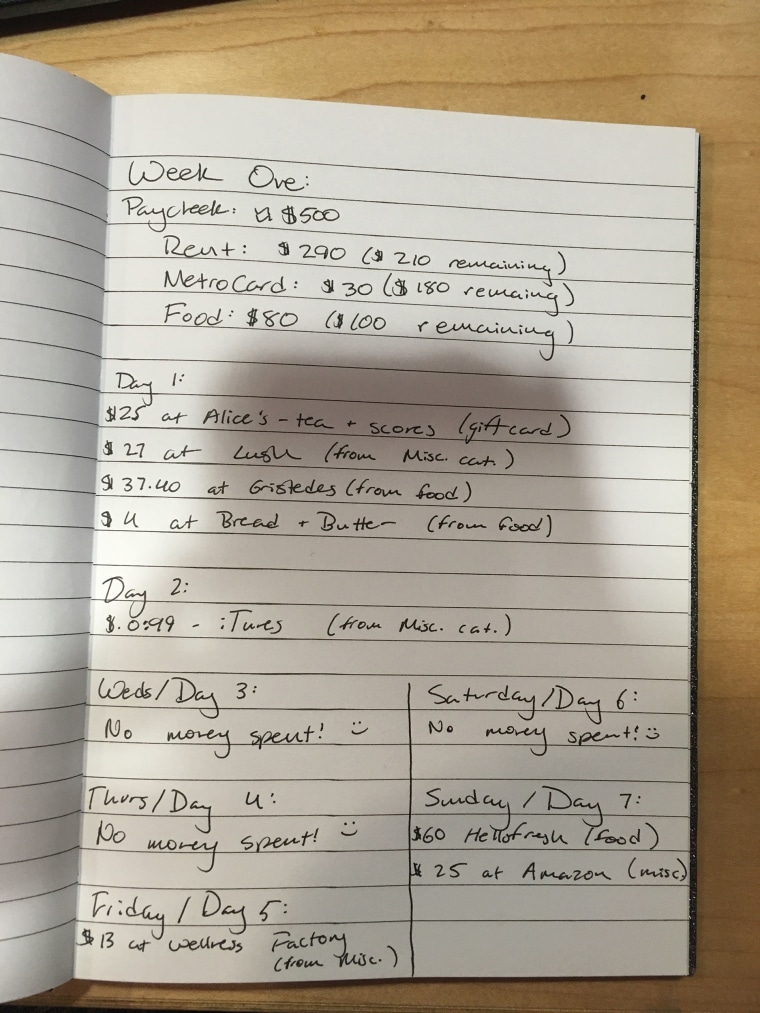 Week One:
Paycheck: $500
Rent: $290 ($210 remaining)
MetroCard: $30 ($180 remaing)
Food: $80 ($100 remaining)
Day 1:
$25 at Alice's - tea + scores (giftcard)
$27 at Lush (from Misc. cat.)
$37.40 at Gristedes (from food)
$4 at Bread + Butter (from food)
Day 2:
$.0.99 - iTunes (from Misc. cat.)
Weds/Day 3:
No money spent! :)
Thurs/Day 4:
No money spent! :)
Friday/Day 5:
$13 at Wellness Factory
(from Misc.)
Saturday/Day 6:
No money spent! :)
Sunday/Day 7:
$60 Hellofresh (food)
$25 at Amazon (misc)